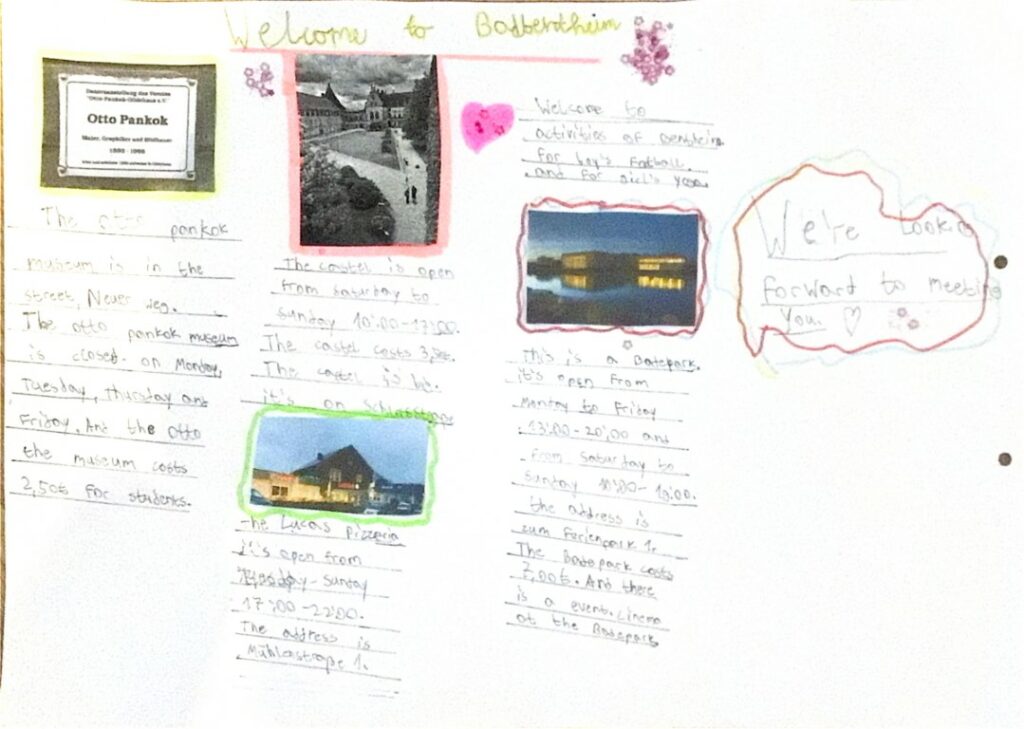 Welcome to Badbentheim
Dauerausstellung des Vereins
"Otto-Pankok-Gildehaus e.V."
Otto Pankok
Maler, Graphiker und Bildhauer
1893 - 1966
The otto pankok
museum is in the
street, Neuer weg.
The otto pankok museum
is closed. on Monday,
Tuesday, Thursday and
Friday. And the otto
the museum costs
2,50€ for students.
The castel is open
from saturday to
sunday 10:00-17:00.
The castel costs 3,50€.
The castel is
it's on
The Lucas pizzeria
it's open from
Tuesday - Sunday
17:00-22:00.
The address is
Mühlenstraße 1.
Welcome to
activities of
for boy's Fotball.
and for girl's Yoga.
This is a Badepark.
it's open from
Monday to Friday
13:00-20:00 and
from Saturday to
Sunday 10:00-19:00.
the address is
zum Ferienpark 1.
The Badepark costs
7,00€. And there
is a event. Cinema
at the Badepark
We're looking
forward to meeting
you. ♡